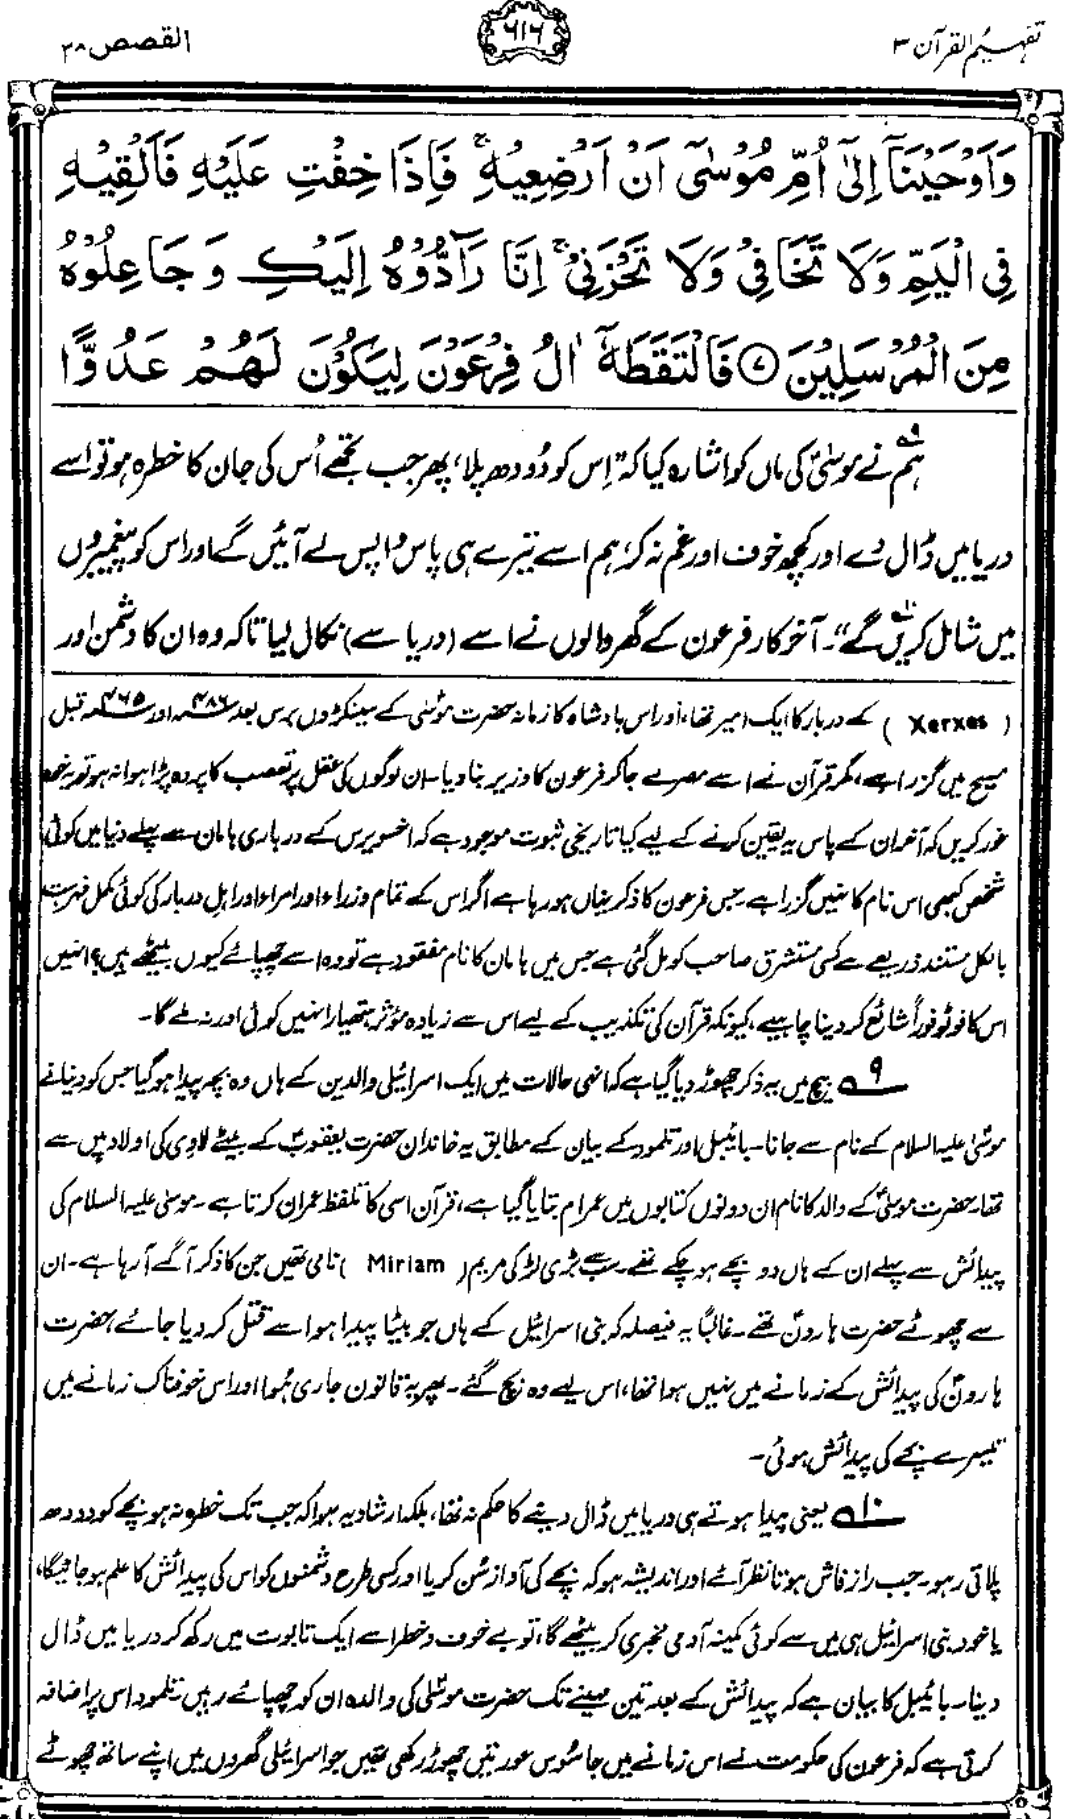 تفہیم القرآن ۳
۶۱۶
القصص ۲۸
وَاَوْحَيْنَآ اِلٰٓى اُمِّ مُوْسٰٓى اَنْ اَرْضِعِيْهِ ۚ فَاِذَا خِفْتِ عَلَيْهِ فَاَلْقِيْهِ
فِى الْيَمِّ وَلَا تَخَافِيْ وَلَا تَحْزَنِيْ ۚ اِنَّا رَآدُّوْهُ اِلَيْكِ وَجَاعِلُوْهُ
مِنَ الْمُرْسَلِيْنَ ۷ فَالْتَقَطَهٗٓ اٰلُ فِرْعَوْنَ لِيَكُوْنَ لَهُمْ عَدُوًّا
ہم۹ نے موسیٰؑ کی ماں کو اشارہ کیا کہ ”اِس کو دُودھ پلا، پھر جب تجھے اُس کی جان کا خطرہ ہو تو اسے
دریا میں ڈال دے اور کچھ خوف اور غم نہ کر، ہم اسے تیرے ہی پاس واپس لے آئیں گے اور اس کو پیغمبروں
میں شامل کریں گے۱۰“۔ آخر کار فرعون کے گھر والوں نے اسے (دریا سے) نکال لیا تاکہ وہ ان کا دشمن اور
(Xerxes) کے دربار کا ایک امیر تھا، اور اس بادشاہ کا زمانہ حضرت موسٰی کے سینکڑوں برس بعد ۴۸۶؁ اور ۴۶۵؁ قبل
مسیح میں گزرا ہے، مگر قرآن نے اسے مصر لے جا کر فرعون کا وزیر بنا دیا۔ ان لوگوں کی عقل پر تعصب کا پردہ پڑا ہوا نہ ہو تو یہ خود
غور کریں کہ آخر ان کے پاس یہ یقین کرنے کے لیے کیا تاریخی ثبوت موجود ہے کہ اخسویرس کے درباری ہامان سے پہلے دنیا میں کوئی
شخص کبھی اس نام کا نہیں گزرا ہے۔ جس فرعون کا ذکر یہاں ہو رہا ہے اگر اس کے تمام وزراء اور امراء اور اہل دربار کی کوئی مکمل فہرست
بالکل مستند ذریعے سے کسی مستشرق صاحب کو مل گئی ہے جس میں ہامان کا نام مفقود ہے تو وہ اسے چھپائے کیوں بیٹھے ہیں؟ انہیں
اس کا فوٹو فوراً شائع کر دینا چاہیے، کیونکہ قرآن کی تکذیب کے لیے اس سے زیادہ مؤثر ہتھیار انہیں کوئی اور نہ ملے گا۔
۹؎ بیچ میں یہ ذکر چھوڑ دیا گیا ہے کہ انہی حالات میں ایک اسرائیلی والدین کے ہاں وہ بچہ پیدا ہو گیا جس کو دنیا نے
موسٰی علیہ السلام کے نام سے جانا۔ بائیبل اور تلمود کے بیان کے مطابق یہ خاندان حضرت یعقوبؑ کے بیٹے لاوِی کی اولاد میں سے
تھا۔ حضرت موسٰیؑ کے والد کا نام ان دونوں کتابوں میں عمرام بتایا گیا ہے، قرآن اسی کا تلفظ عمران کرتا ہے۔ موسٰی علیہ السلام کی
پیدائش سے پہلے ان کے ہاں دو بچے ہو چکے تھے۔ سب سے بڑی لڑکی مریم (Miriam) نامی تھیں جن کا ذکر آگے آ رہا ہے۔ ان
سے چھوٹے حضرت ہارونؑ تھے۔ غالباً یہ فیصلہ کہ بنی اسرائیل کے ہاں جو بیٹا پیدا ہو اسے قتل کر دیا جائے، حضرت
ہارونؑ کی پیدائش کے زمانے میں نہیں ہوا تھا، اس لیے وہ بچ گئے۔ پھر یہ قانون جاری ہوا اور اس خوفناک زمانے میں
تیسرے بچے کی پیدائش ہوئی۔
۱۰؎ یعنی پیدا ہوتے ہی دریا میں ڈال دینے کا حکم نہ تھا، بلکہ ارشاد یہ ہوا کہ جب تک خطرہ نہ ہو بچے کو دودھ
پلاتی رہو۔ جب راز فاش ہوتا نظر آئے اور اندیشہ ہو کہ بچے کی آواز سُن کر یا اور کسی طرح دشمنوں کو اس کی پیدائش کا علم ہو جائیگا،
یا خود بنی اسرائیل ہی میں سے کوئی کمینہ آدمی مخبری کر بیٹھے گا، تو بے خوف و خطر اسے ایک تابوت میں رکھ کر دریا میں ڈال
دینا۔ بائیبل کا بیان ہے کہ پیدائش کے بعد تین مہینے تک حضرت موسٰیؑ کی والدہ ان کو چھپائے رہیں۔ تلمود اس پر اضافہ
کرتی ہے کہ فرعون کی حکومت نے اس زمانے میں جاسوس عورتیں چھوڑ رکھی تھیں جو اسرائیلی گھروں میں اپنے ساتھ چھوٹے